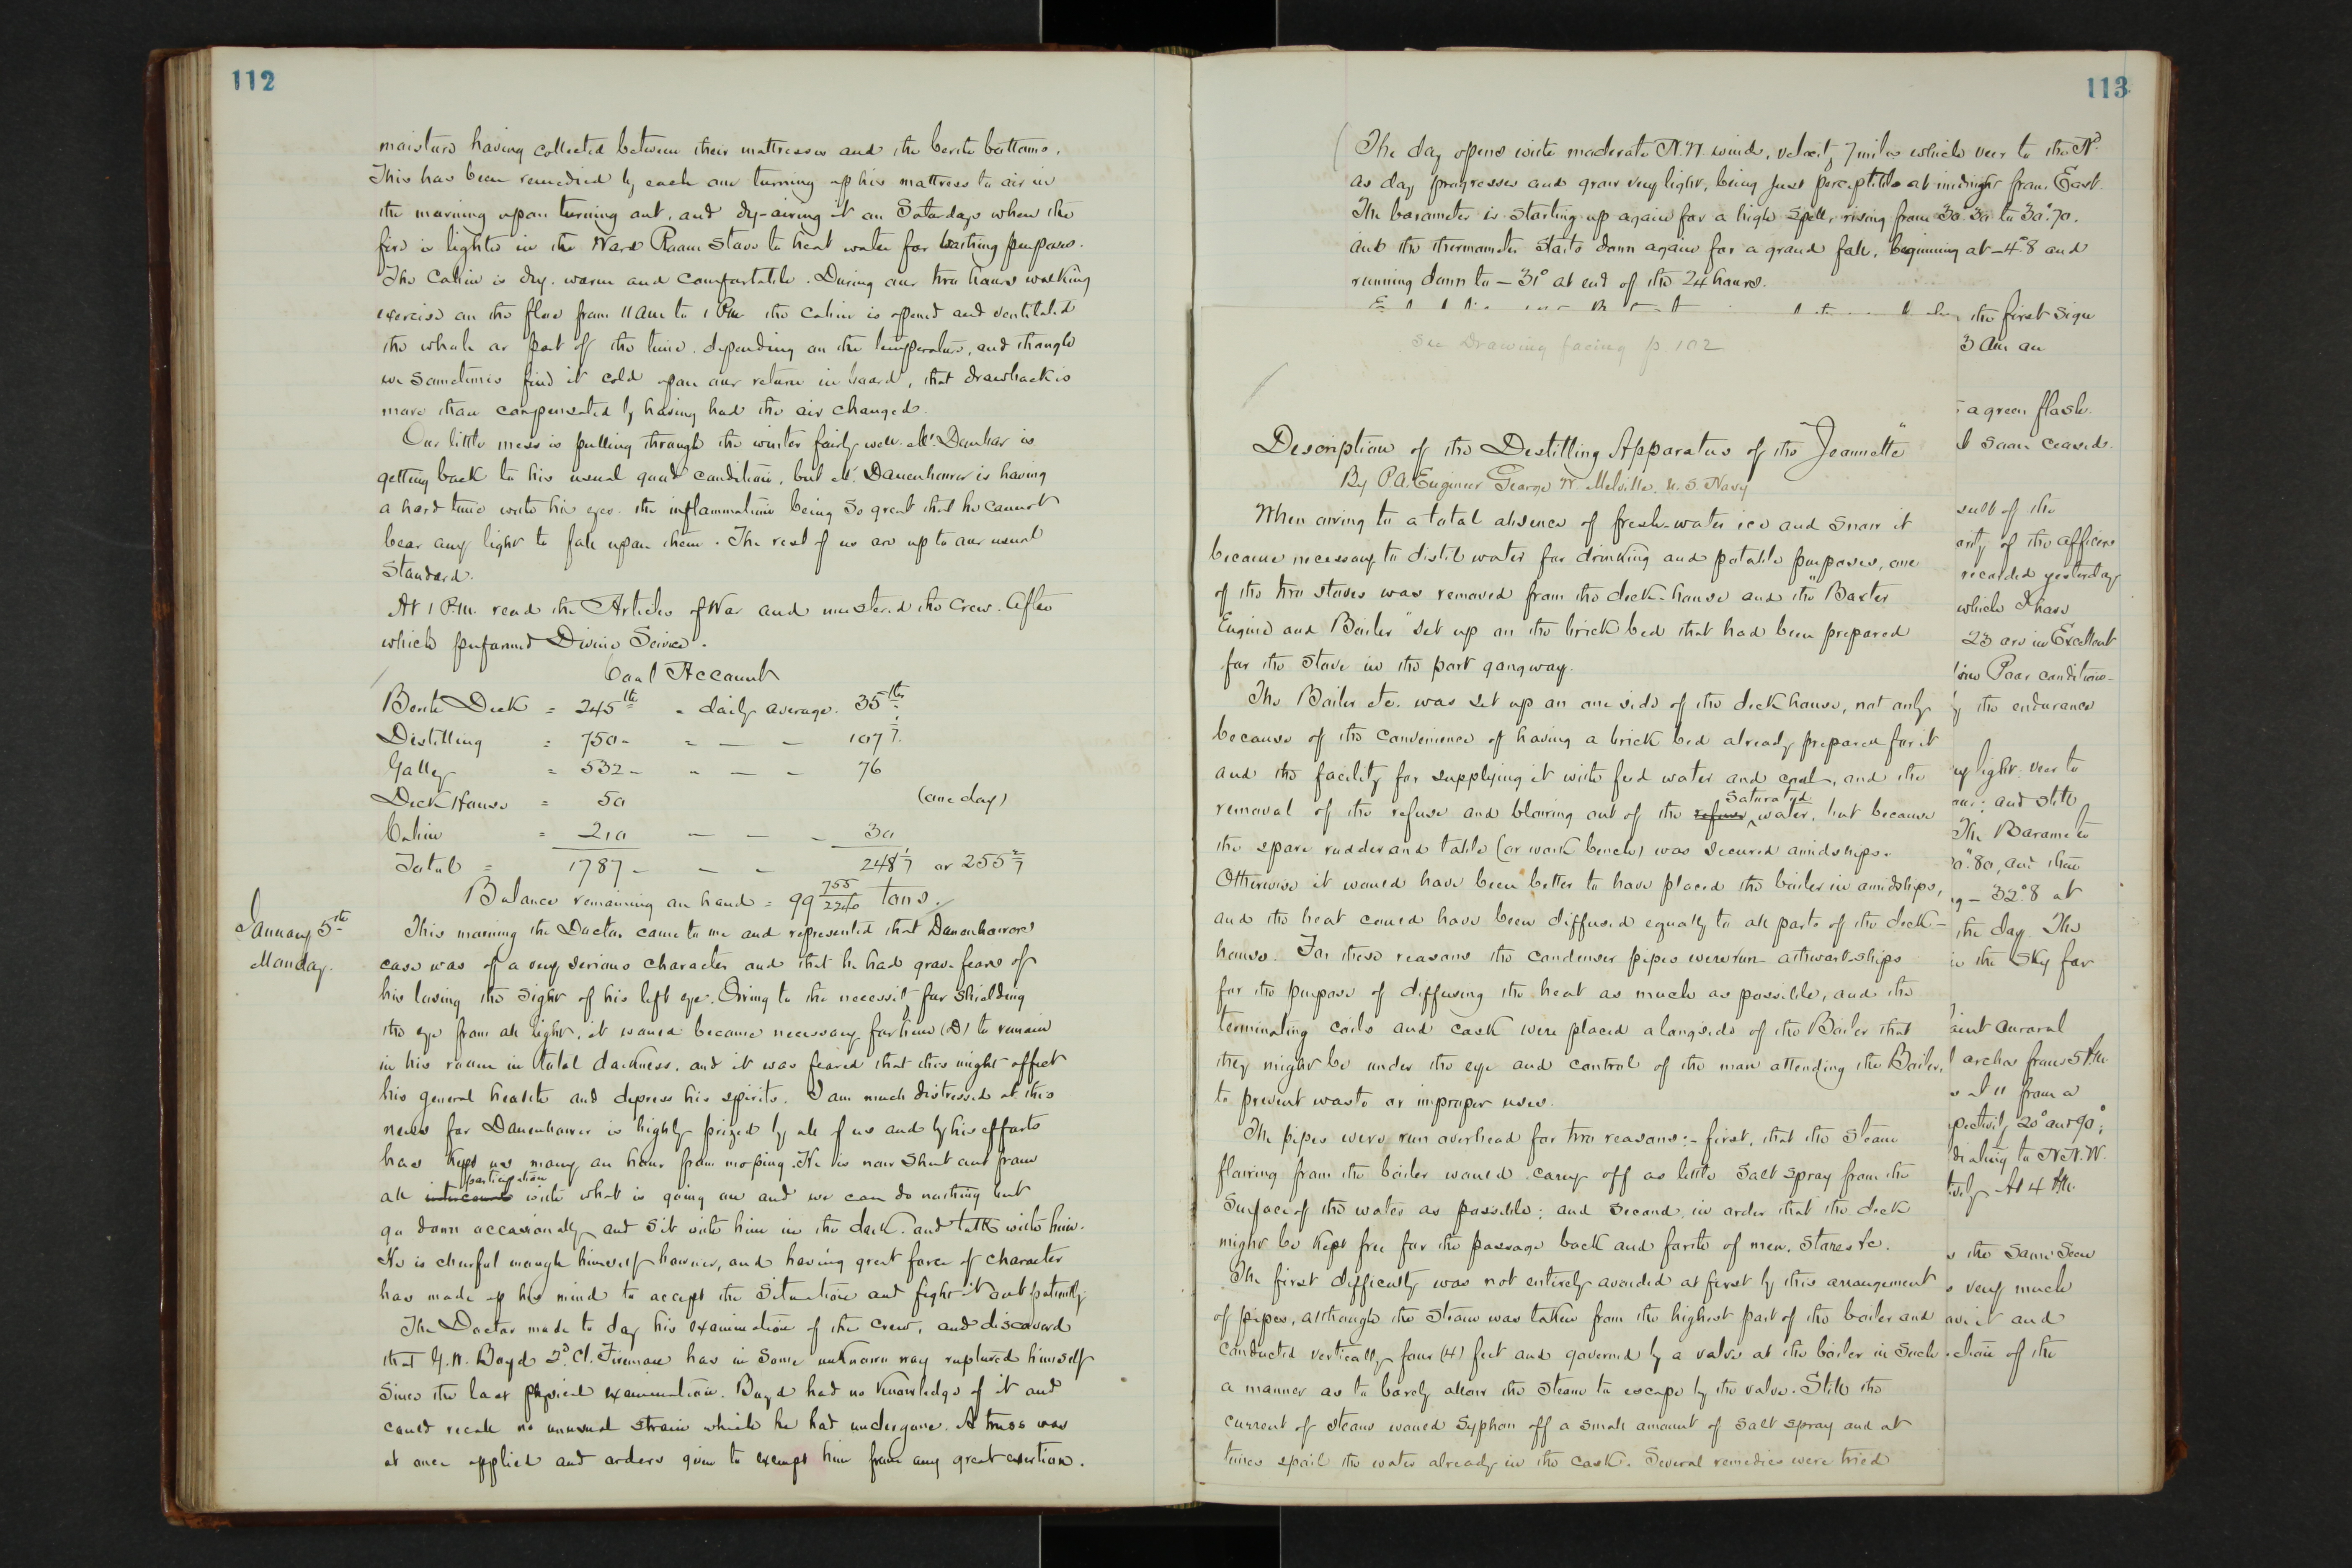 112
moisture having collected between their mattresses and the berth bottoms.
This has been remedied by each one turning up his mattress to air in
the morning upon turning out, and by airing it on Saturdays when the
fire is lighted in the Ward Room stove to heat water for bathing purposes.
The Cabin is dry, warm and comfortable. During our two hours walking
exercise on the floe from 11 am to 1 P.m. the cabin is opened and ventilated
the whole or part of the time, depending on the temperature, and though
we sometimes find it cold upon our return in board, that drawback is
more than compensated by having had the air changed.
Our little mess is pulling through the winter fairly well. Mr. Dunbar is
getting back to his usual good condition, but Mr. Danenhower is having
a hard time with his eyes. the inflammation being so great that he cannot
bear any light to fall upon them. The rest of us are up to our usual
standard.
At 1 P.m. read the Articles of War and mustered the crew. After
which performed Divine Service.
Coal Account
Berth Deck = 245 lbs = daily average. 35 lbs
Distilling = 750 - " — — 107 1/7
Galley = 532 - " — — 76
Deck House = 50 (one day)
Cabin = 210 — — — 30
Total = 1787 - — — 248 1/7 or 255 2/7
Balance remaining on hand = 99 755/2240 tons.
January 5th
Monday.
This morning the Doctor came to me and represented that Danenhower's
case was of a very serious character and that he had grave fears of
his losing the sight of his left eye. Owing to the necessit for shielding
the eye from all light, it would become necessary for him (D) to remain
in his room in total darkness, and it was feared that this might affect
his general health and depress his spirits. I am much distressed at this
news for Danenhower is highly prized by all of us and by his efforts
has kept us many an hour from moping. He is now shut out from
participation
all intercourse with what is going on and we can do nothing but
go down occasionally and sit with him in the dark, and talk with him.
He is cheerful enough himself however, and having great force of character
has made up his mind to accept the situation and fight it out patiently.
The Doctor made to day his examination of the crew, and discovered
that G.W. Boyd 2d Cl. Fireman has in some unknown way ruptured himself
since the last physical examination. Boyd had no knowledge of it and
could recall no unusual strain which he had undergone. A truss was
at once applied and orders given to exempt him from any great exertion.
113
The day opens with moderate N.W. wind, velocity 7 miles which veer to the Nd.
as day progresses and grow very light, being just perceptible at midnight from East.
The barometer is starting up again for a high spell, rising from 30.30 to 30".70.
and the thermometer starts down again for a grand fall, beginning at -4°.8 and
running down to -31° at end of the 24 hours.
See Drawing facing p. 102
Description of the Destilling Apparatus of the "Jeannette"
By P.A. Engineer George W. Melville. U.S. Navy
When owing to a total absence of fresh-water ice and snow it
became necessary to distil water for drinking and potable purposes, one
of the two stoves was removed from the deck-house and the "Baxter
Engine and Boiler" set up on the brick bed that had been prepared
for the stove in the port gangway.
The Boiler etc. was set up on one side of the deck house, not only
because of the convenience of having a brick bed already prepared for it
and the facility for supplying it with feed water and coal, and the
saturated
removal of the refuse and blowing out of the refuse ^ water, but because
the spare rudder and table (or work bench) was secured amidships.
Otherwise it would have been better to have placed the boiler in amidships,
and the heat could have been diffused equally to all parts of the deck-
house. For these reasons the condenser pipes were run athwart-ships
for the purpose of diffusing the heat as much as possible, and the
terminating coils and cask were placed alongside of the Boiler that
they might be under the eye and control of the man attending the Boiler,
to prevent waste or improper uses.
The pipes were run overhead for two reasons:- first, that the steam
flowing from the boiler would carry off as little salt spray from the
surface of the water as possible; and second, in order that the deck
might be kept free for the passage back and forth of men, stores &c.
The first difficulty was not entirely avoided at first by this arrangement
of pipes, although the steam was taken from the highest part of the boiler and
conducted vertically four (4) feet and governed by a valve at the boiler in such
a manner as to barely allow the steam to escape by the valve. Still the
current of steam would syphon off a small amount of salt spray and at
times spoil the water already in the cask. Several remedies were tried
the first sign
3 Am an
a green flash.
soon ceased.
sult of the
of the officers
recorded yesterday
which I have
23 are in Excellent
Poor condition-
the endurance
light. veer to
and still
The Barometer
.80, and then
- 32°.8 at
the day. The
in the sky for
auroral
arches from 5 Am.
from a
20° and 90°;
to N.N.W.
At 4 Am.
the same seen
very much
it and
of the